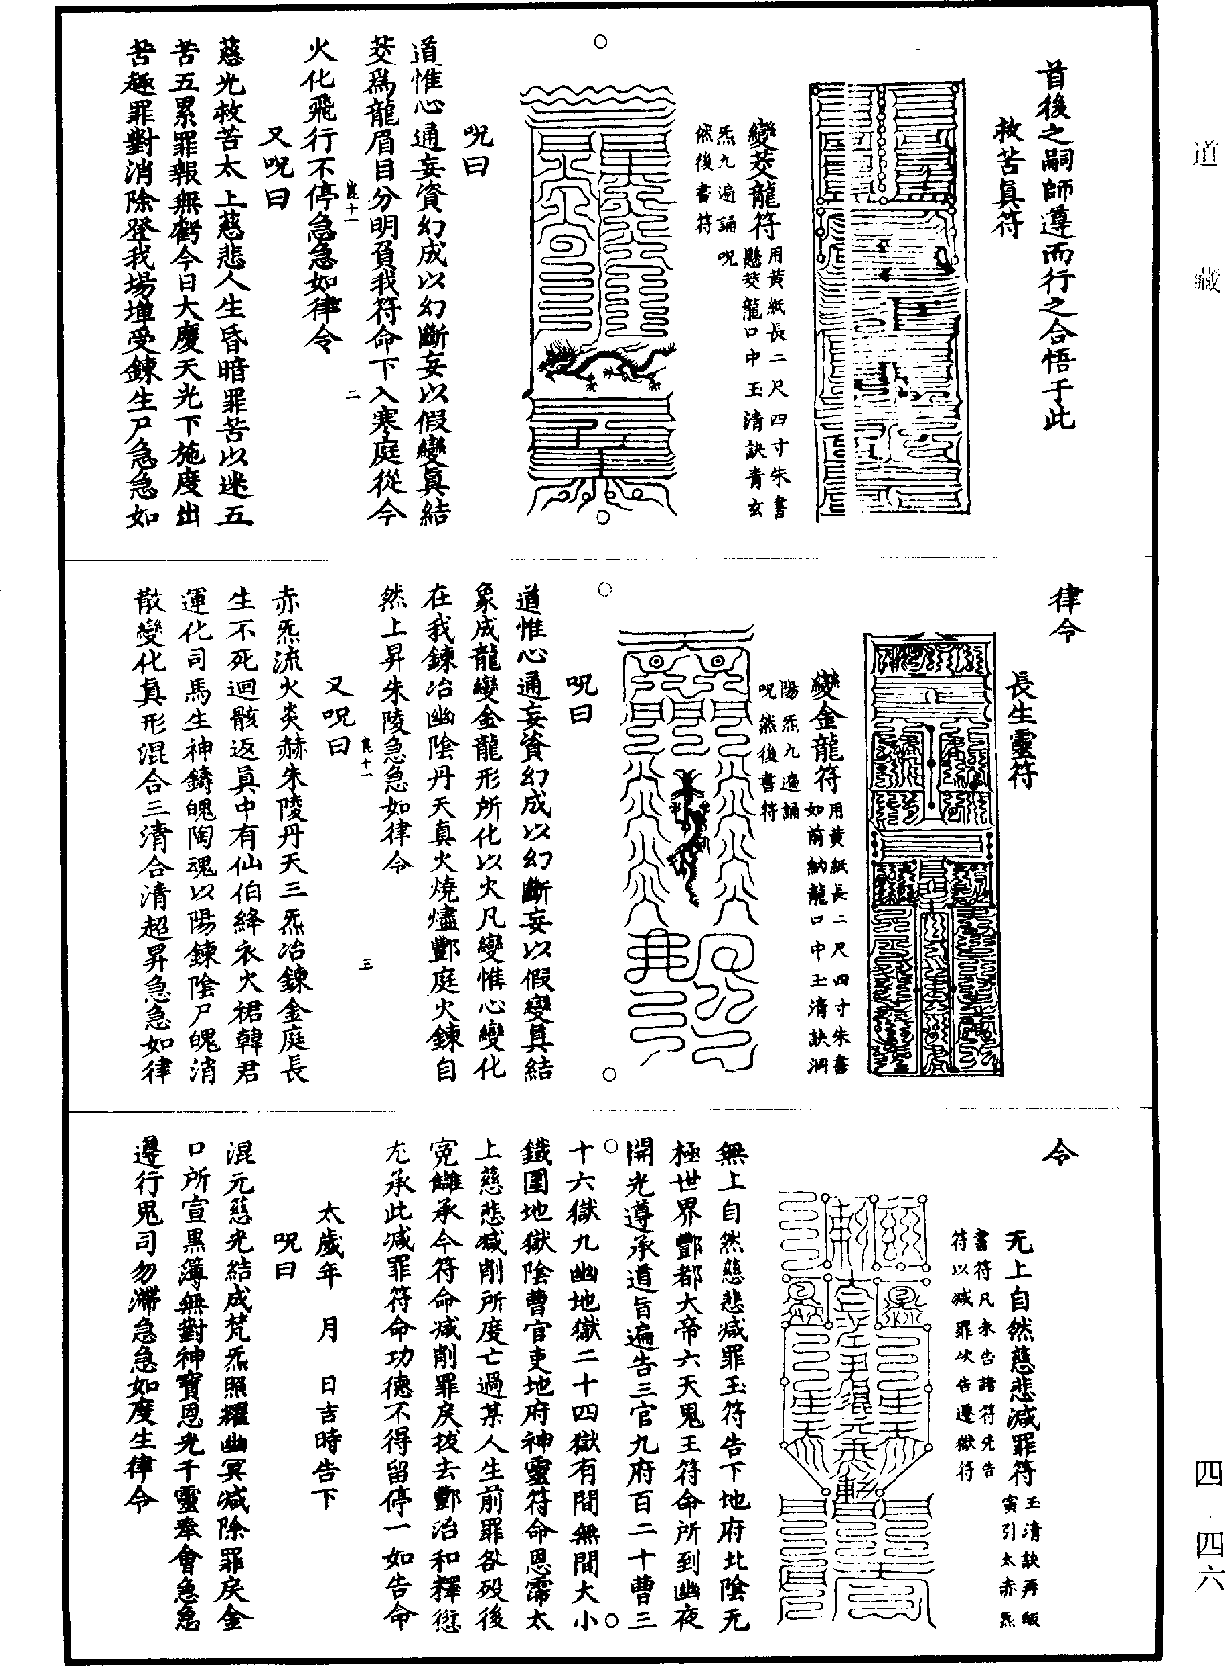 道藏
四·四六
首後之嗣師遵而行之合悟于此
救苦真符
變茭龍符
用黃紙長二尺四寸朱書
懸茭龍口中玉清訣青玄
炁九遍誦呪
然後書符
呪曰
道惟心通妄資幻成以幻斷妄以假變真結
茭為龍眉目分明負我符命下入寒庭從今
火化飛行不停急急如律令
二
又呪曰
慈光救苦太上慈悲人生昏暗罪苦以迷五
苦五累罪報無虧今日大慶天光下施度出
苦趣罪對消除登我場壇受鍊生尸急急如
律令
長生靈符
變金龍符
用黃紙長二尺四寸朱書
如前納龍口中玉清訣洞
陽炁九遍誦
呪然後書符
呪曰
道惟心通妄資幻成以幻斷妄以假變真結
象成龍變金龍形所化以火凡變惟心變化
在我鍊冶幽陰丹天真火燒燼酆庭火鍊自
然上昇朱陵急急如律令
三
又呪曰
赤炁流火炎赫朱陵丹天三炁冶鍊金庭長
生不死迴骸返真中有仙伯絳衣火裙韓君
運化司馬生神鑄魄陶魂以陽鍊陰尸魄消
散變化真形混合三清合清超昇急急如律
令
无上自然慈悲減罪符
玉清訣再
寅引太赤炁
書符凡未告諸符先告
符以減罪次告遷獄符
無上自然慈悲減罪玉符告下地府北陰无
極世界酆都大帝六天鬼王符命所到幽夜
開光遵承道旨遍告三官九府百二十曹三
十六獄九幽地獄二十四獄有間無間大小
鐵圍地獄陰曹官吏地府神靈符命恩霈太
上慈悲減削所度亡過某人生前罪咎歿後
冤讎承今符命減削罪戾拔去酆治和釋愆
尤承此減罪符命功德不得留停一如告命
太歲年　月　日吉時告下
呪曰
混元慈光結成梵炁照耀幽冥減除罪戾金
口所宣黑簿無對神寶恩光千靈奉會急急
遵行鬼司勿滯急急如度生律令